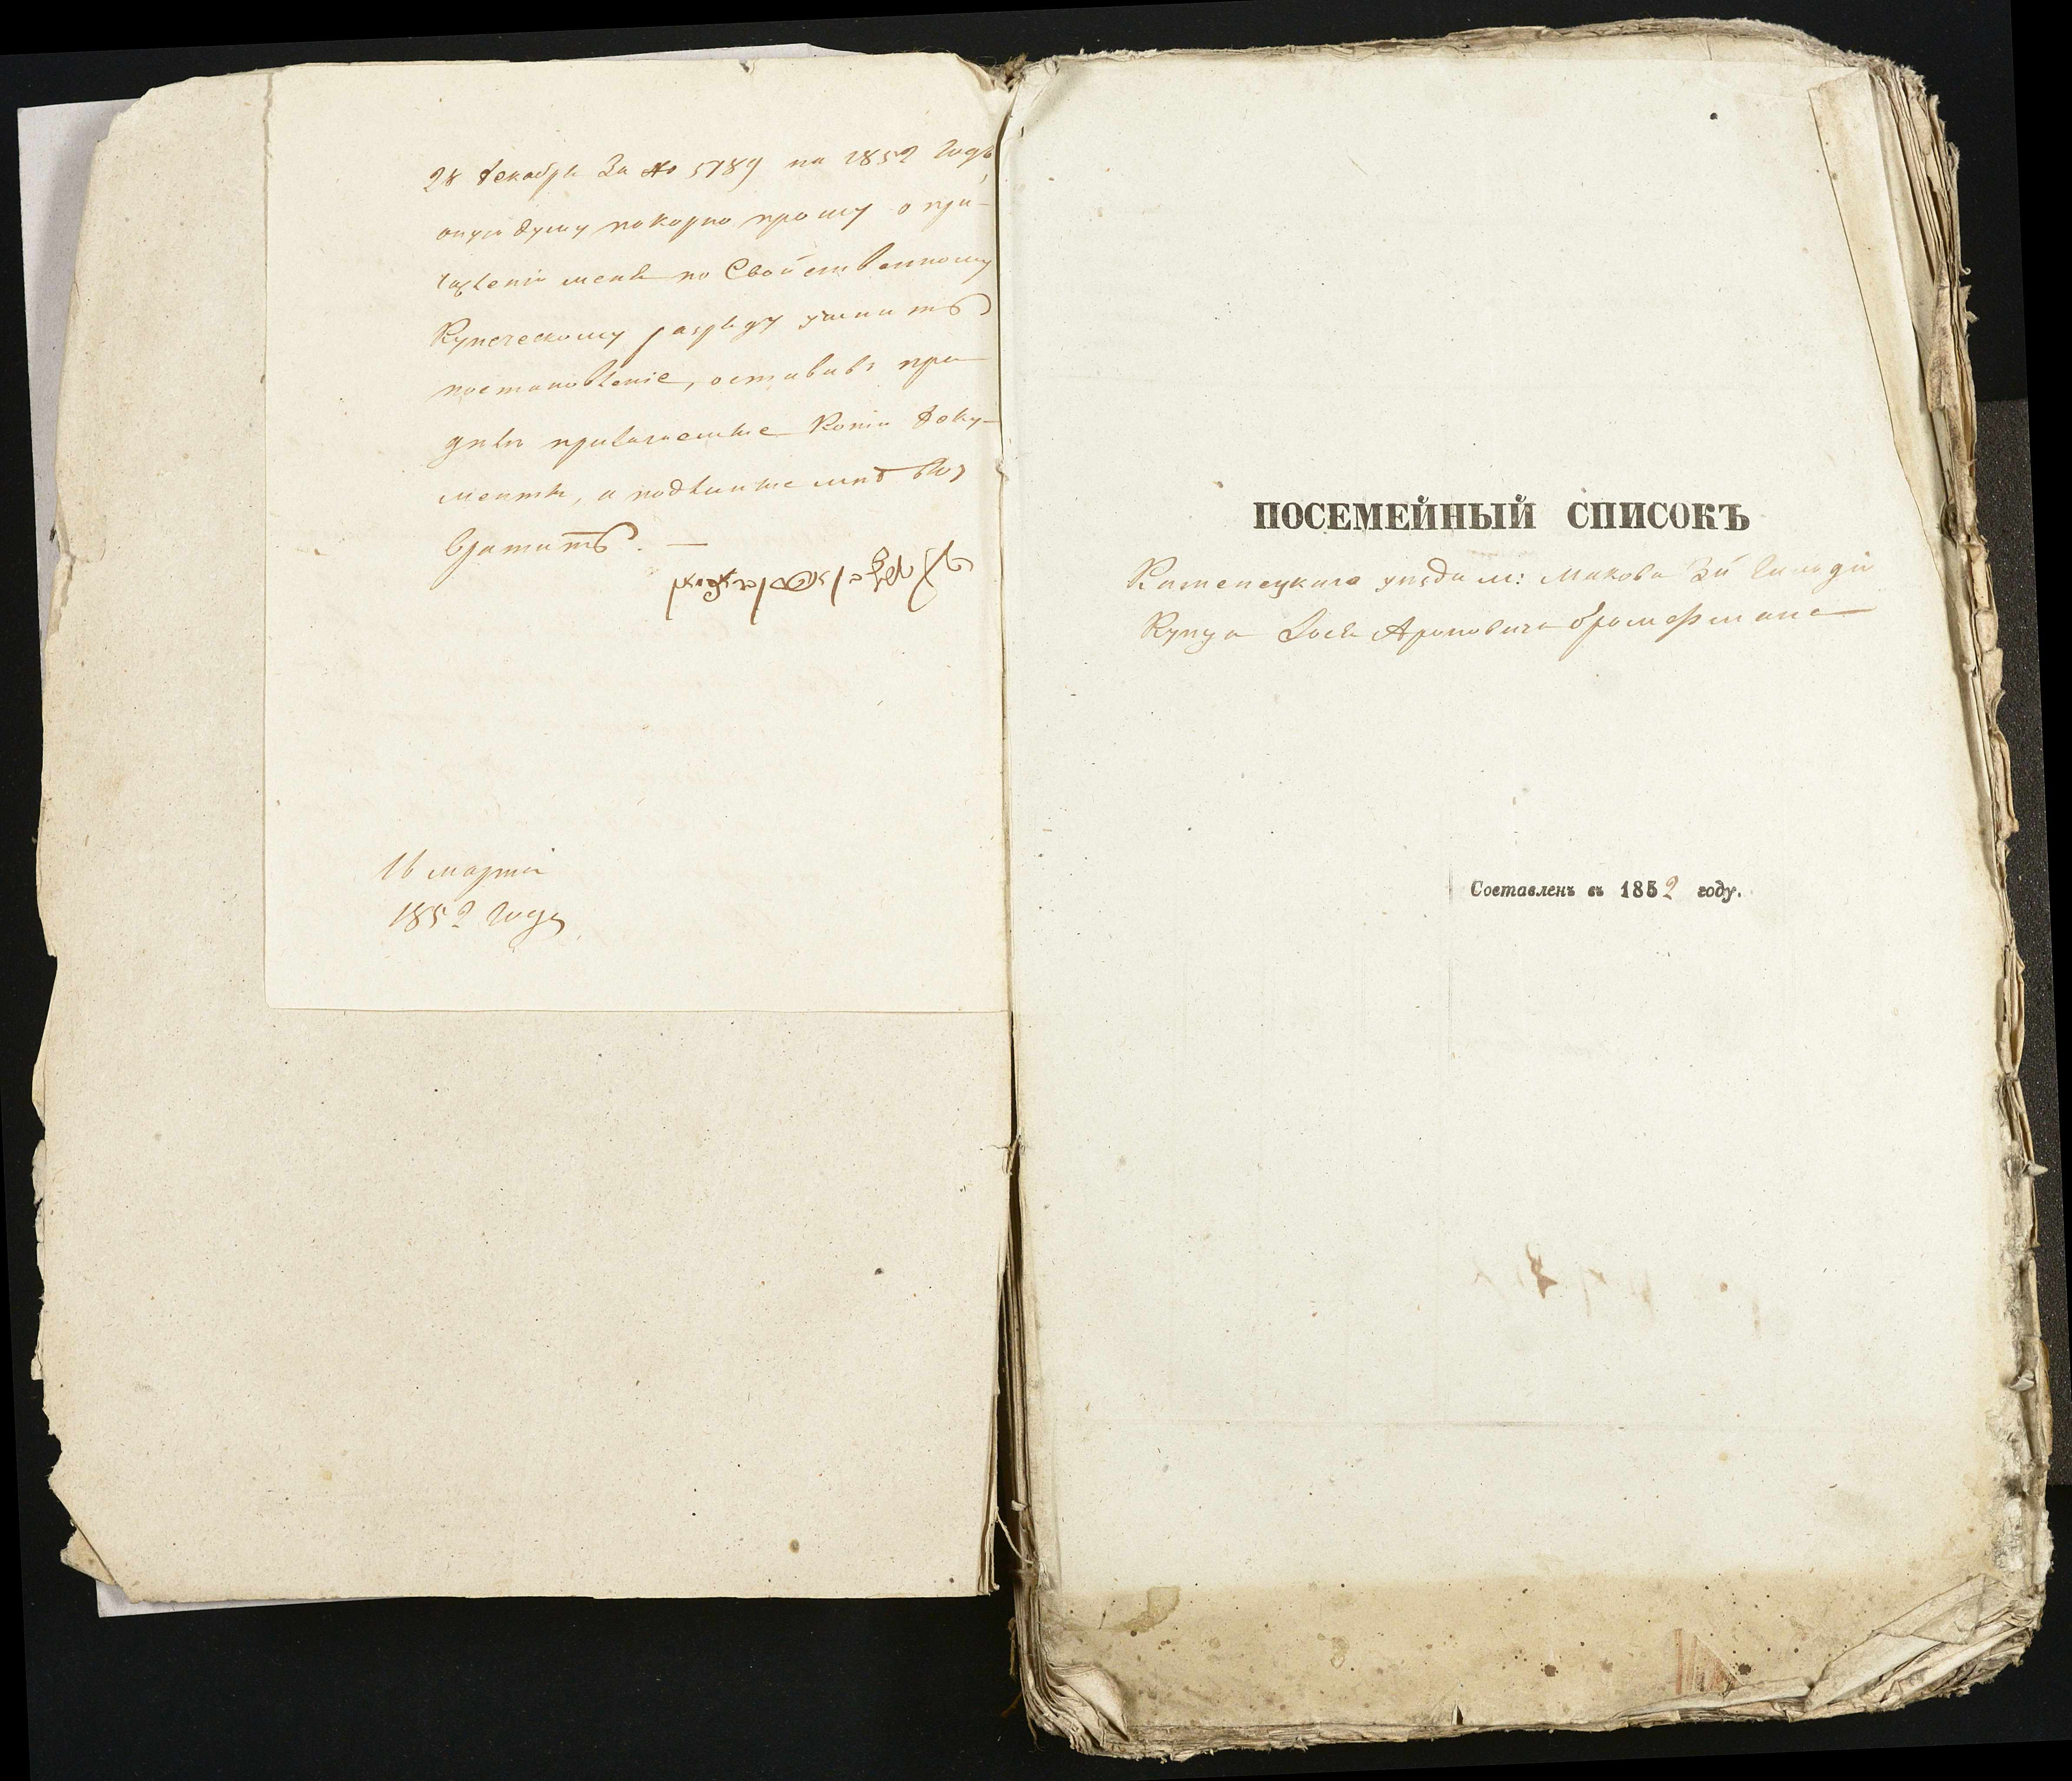 28 декабря за № 5789 на 1852 годъ
оную думу покорно прошу о при-
численіи меня по свойственному
купеческому разряду учинить
постановленіе, оставивъ при
дѣлѣ прилагаемые копіи доку-
менты, а подлинные мнѣ воз
вратить. —
16 марта
1852 года
ПОСЕМЕЙНЫЙ СПИСОКЪ
Каменецкаго уѣзда м: Макова 3й гильдіи
Купца Іося Ароновича
Составленъ въ 1852 году.